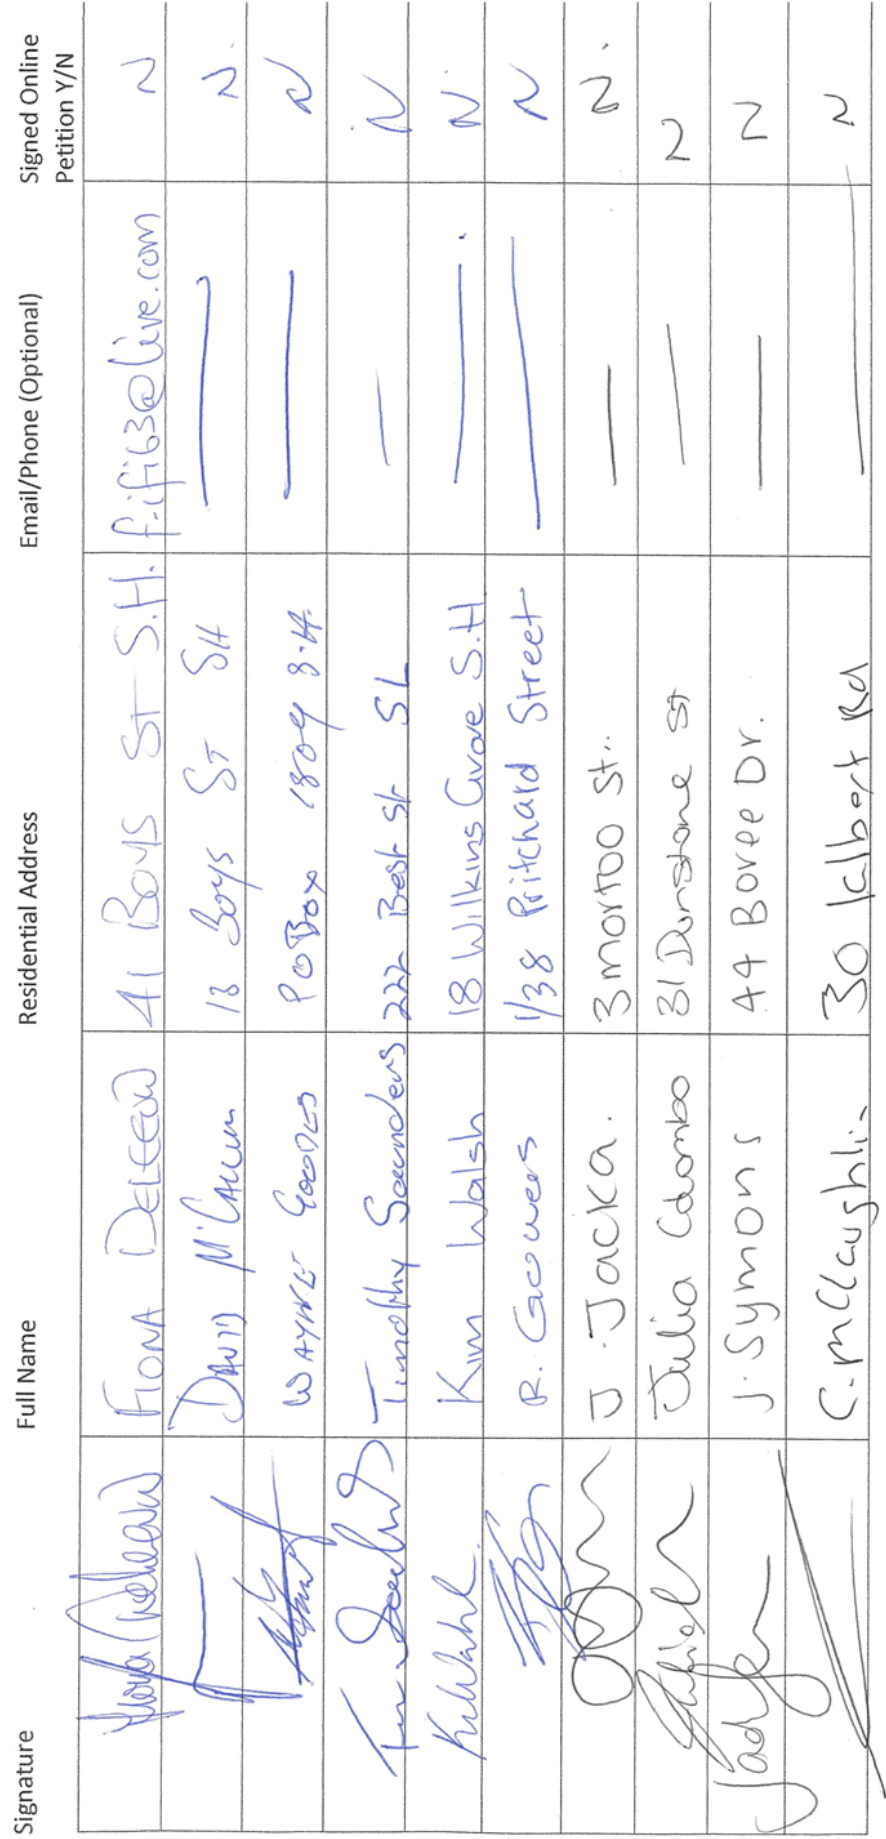 Signature Full Name Residential Address Email/Phone (Optional) Signed Online Petition Y/N
FIONA DELEEUW 41 BOYS ST S.H. f.ifi63@live.com N
DAVID McCALLUM 18 Boys ST SH — N.
WAYNE GOODES PO Box 1809 S.H. — N
Timothy Saunders 222 Best St — N
K Walsh Kim Walsh 18 Wilkins Grove S.H — N.
R. Gowers 1/38 Pritchard Street — N
J. Jacka. 3 mortoo St.. — N.
Julia Colombo 31 Dunstone St — N
J. Symons 44 Boree Dr. — N
C. McClaughlin 30 Kalbert Rd — N